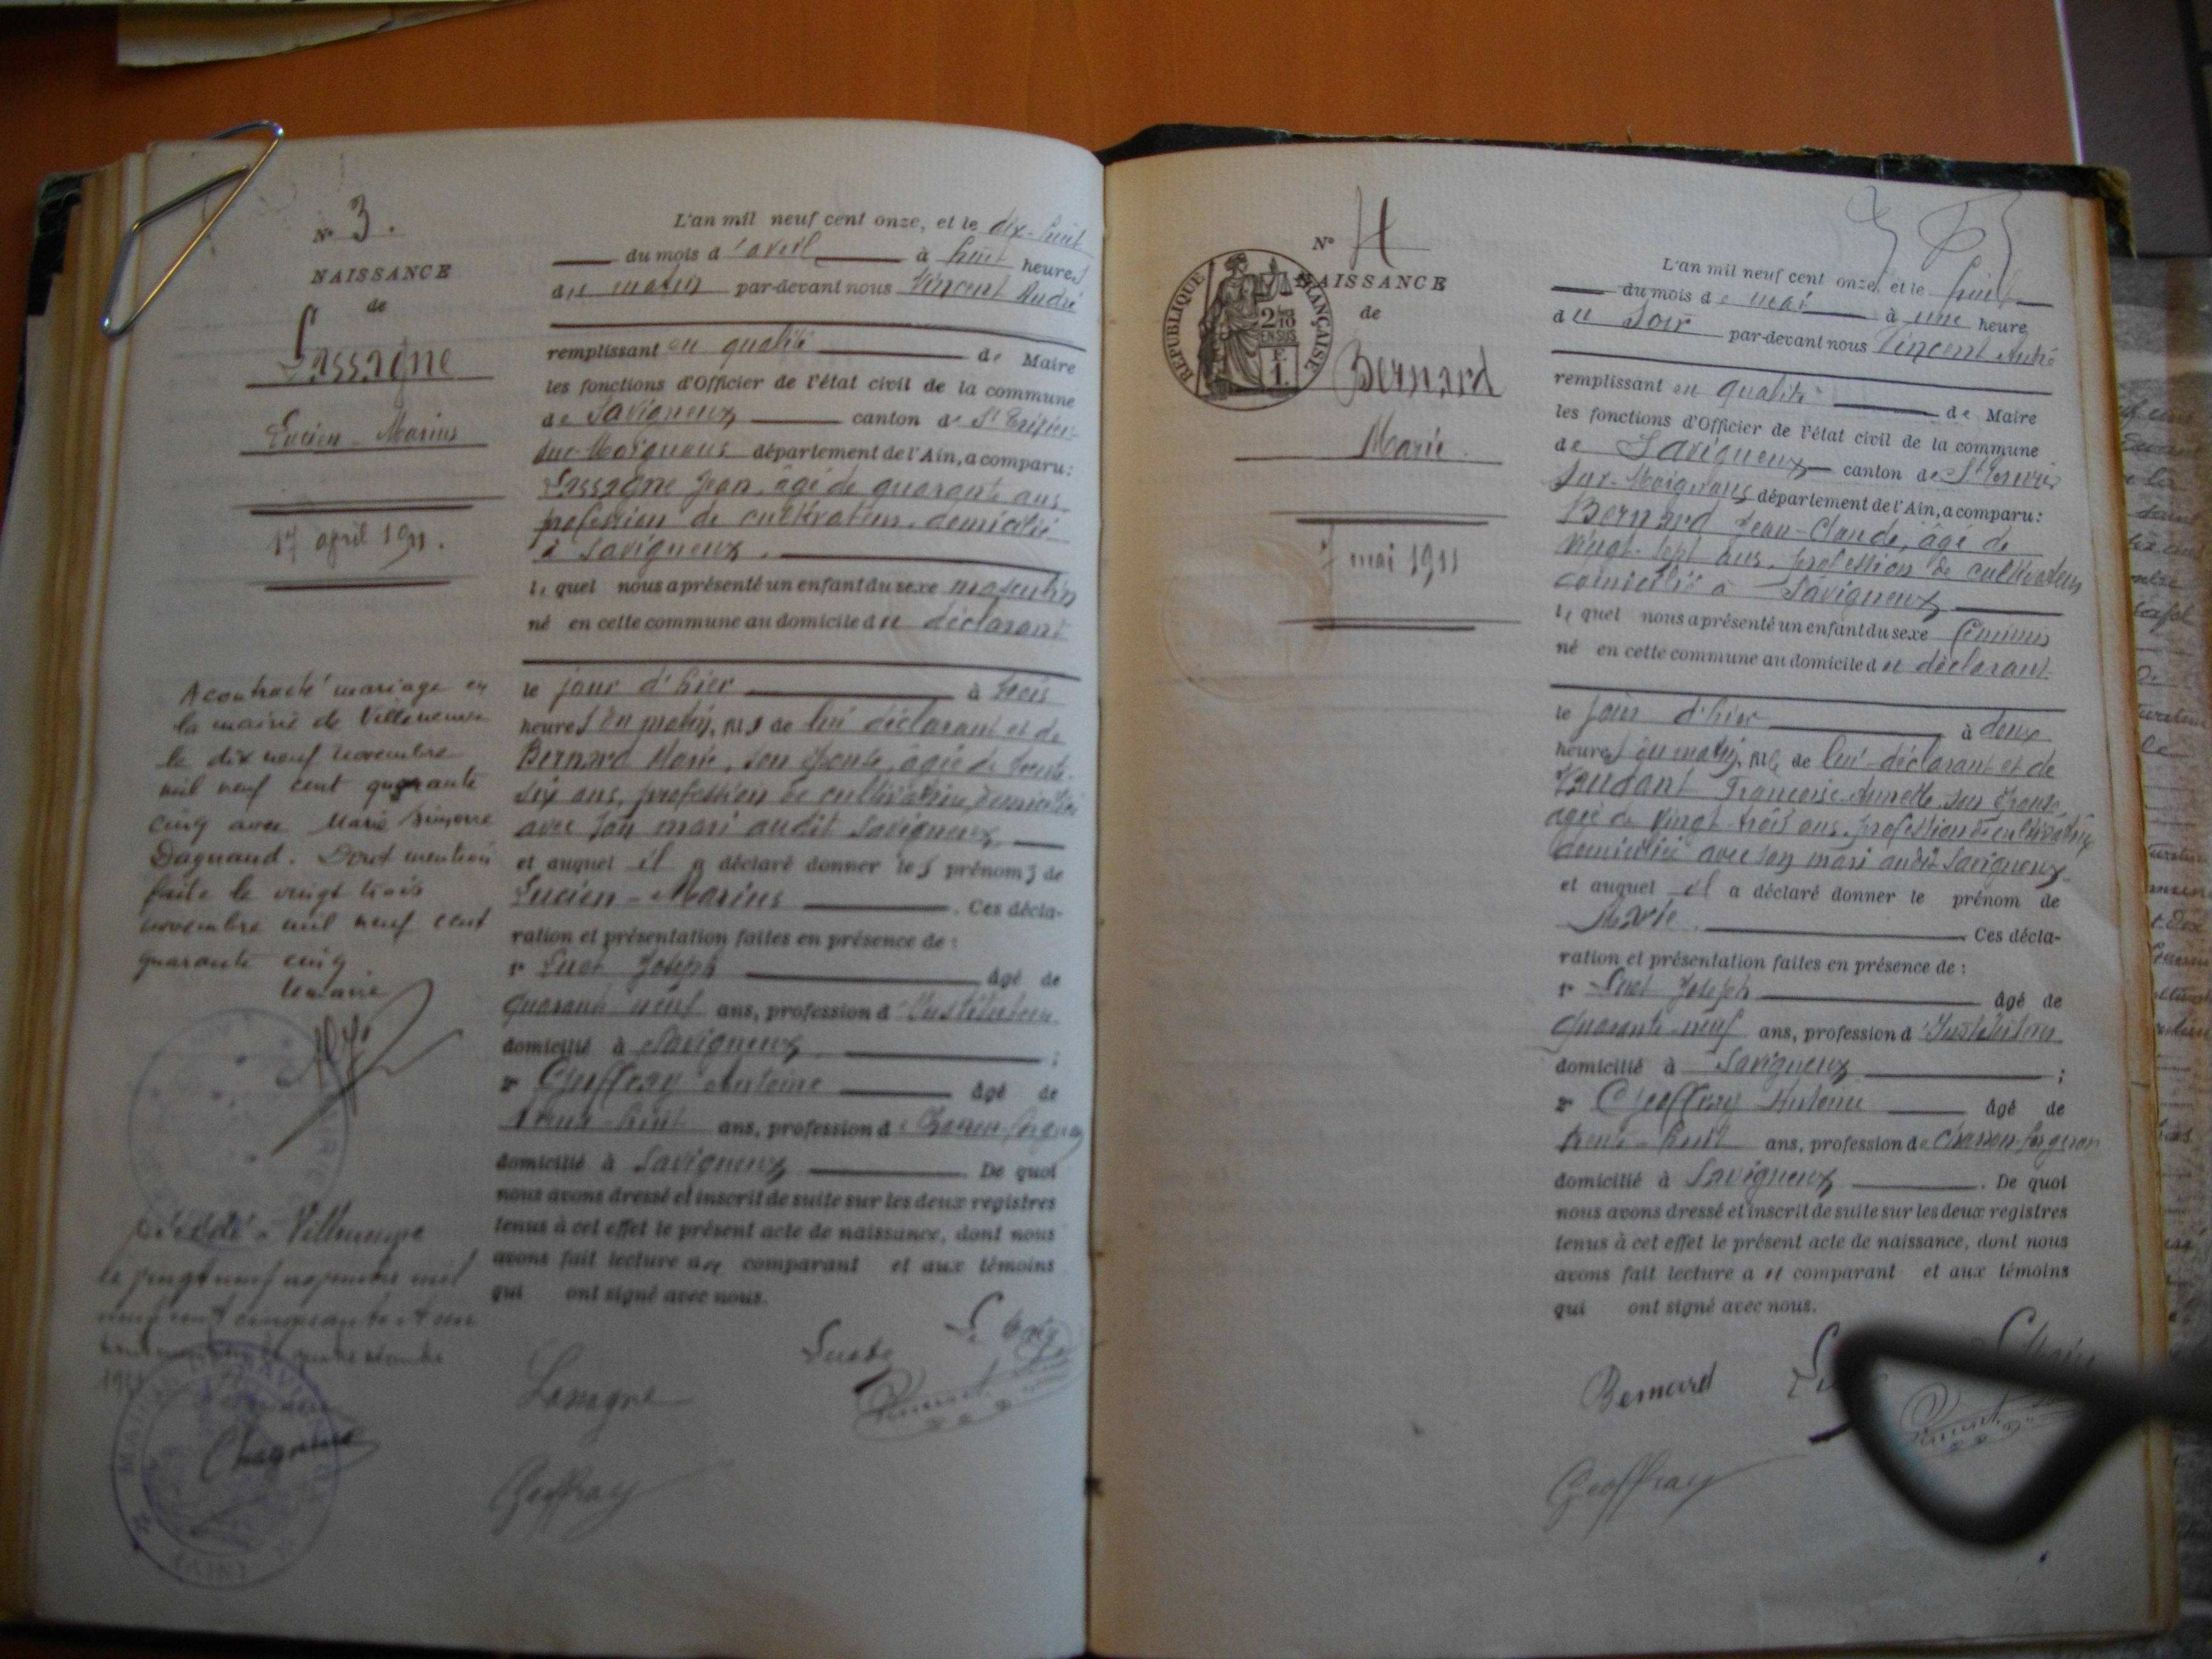 N° 3.
NAISSANCE
de
Lassagne
Lucien-Marius
17 april 1911.
A contracté mariage en
la mairie de Villeneuve
le dix neuf novembre
mil neuf cent quarante
cinq avec Marie
Dagnaud. Dont mention
faite le vingt trois
novembre mil neuf cent
quarante cinq
Le maire
Décédé à Villeneuve
le vingt neuf mil
neuf cent cinquante et un
Chagneux
L'an mil neuf cent onze, et le dix-huit
du mois d'avril à huit heures
du matin par-devant nous Vincent André
remplissant en qualité de Maire
les fonctions d'Officier de l'état civil de la commune
de Savigneux canton de St Trivier-
sur-Moignans département de l'Ain, a comparu:
Lassagne Jean, âgé de quarante ans
profession de cultivateur, domicilié
à Savigneux.
lequel nous a présenté un enfant du sexe masculin
né en cette commune au domicile du déclarant
le jour d'hier à trois
heures du matin, fils de lui déclarant et de
Bernard Marie, son épouse, âgée de trente-
six ans, profession de cultivatrice, domiciliée
avec son mari audit Savigneux,
et auquel il a déclaré donner les prénoms de
Lucien-Marius. Ces décla-
ration et présentation faites en présence de:
1° Suet Joseph âgé de
quarante neuf ans, profession d'Instituteur
domicilié à Savigneux;
2° Geoffray Antoine âgé de
trente-huit ans, profession de Charron-forgeron
domicilié à Savigneux. De quoi
nous avons dressé et inscrit de suite sur les deux registres
tenus à cet effet le présent acte de naissance, dont nous
avons fait lecture au comparant et aux témoins
qui ont signé avec nous.
Lassagne
Vincent
Geoffray
RÉPUBLIQUE FRANÇAISE
2/10
EN SUS
F.
1.
N° 4
NAISSANCE
de
Bernard
Marie.
7 mai 1911
L'an mil neuf cent onze, et le huit
du mois de mai à une heure
du soir par-devant nous Vincent André
remplissant en qualité de Maire
les fonctions d'Officier de l'état civil de la commune
de Savigneux canton de St Trivier
sur-Moignans département de l'Ain, a comparu:
Bernard Jean-Claude, âgé de
vingt-sept ans, profession de cultivateur
domicilié à Savigneux
lequel nous a présenté un enfant du sexe féminin
né en cette commune au domicile du déclarant
le jour d'hier à deux
heures du matin, fille de lui déclarant et de
Françoise son épouse
âgée de vingt-trois ans, profession de cultivatrice
domiciliée avec son mari audit Savigneux
et auquel il a déclaré donner le prénom de
Marie. Ces décla-
ration et présentation faites en présence de:
1° Suet Joseph âgé de
quarante-neuf ans, profession d'Instituteur
domicilié à Savigneux;
2° Geoffray Antoine âgé de
trente-huit ans, profession de Charron-forgeron
domicilié à Savigneux. De quoi
nous avons dressé et inscrit de suite sur les deux registres
tenus à cet effet le présent acte de naissance, dont nous
avons fait lecture au comparant et aux témoins
qui ont signé avec nous.
Bernard
Vincent
Geoffray